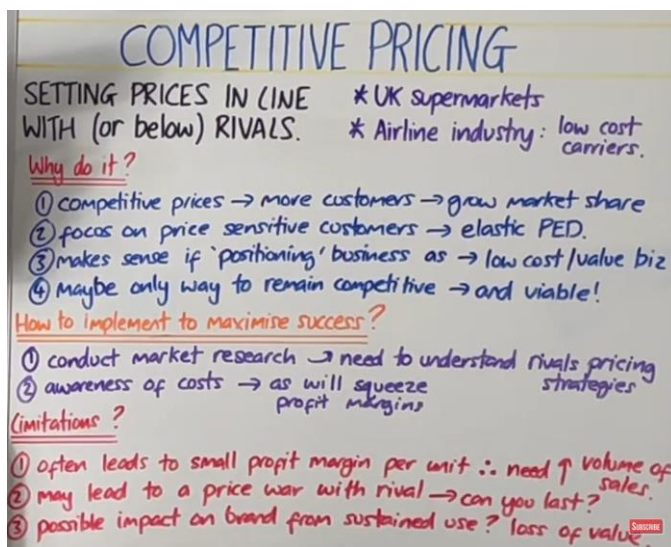 COMPETITIVE PRICING
SETTING PRICES IN LINE
WITH (or below) RIVALS.
* UK supermarkets
* Airline industry: low cost
carriers.
Why do it?
① competitive prices → more customers → grow market share
② focus on price sensitive customers → elastic PED.
③ makes sense if 'positioning' business as → low cost/value biz
④ maybe only way to remain competitive → and viable!
How to implement to maximise success?
① conduct market research → need to understand rivals pricing
strategies
② awareness of costs → as will squeeze
profit margins
Limitations?
① often leads to small profit margin per unit ∴ need ↑ volume of
sales.
② may lead to a price war with rival → can you last?
③ possible impact on brand from sustained use? loss of value.
SUBSCRIBE